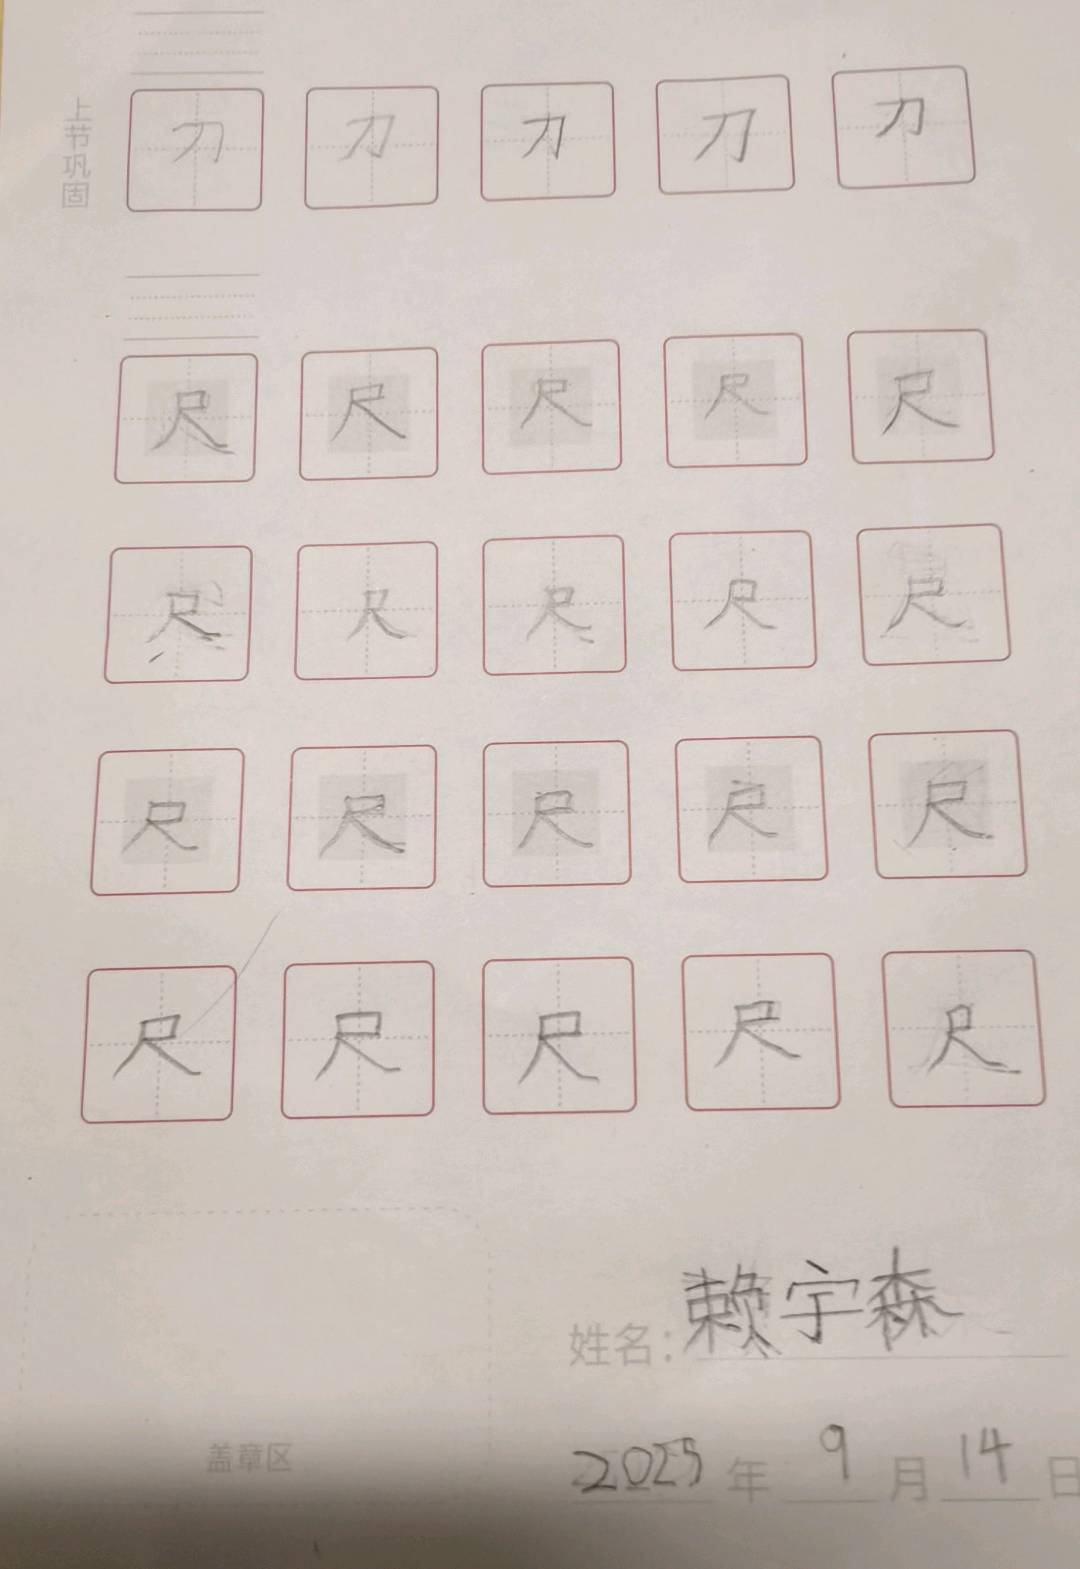 上节巩固
刀 刀 刀 刀 刀
尺 尺 尺 尺 尺
尺 尺 尺 尺 尺
尺 尺 尺 尺 尺
尺 尺 尺 尺 尺
姓名：赖宇森
盖章区
2025年9月14日